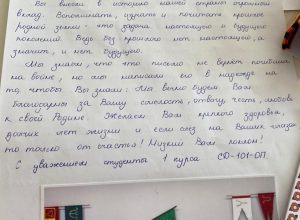 Вы внесли в историю нашей страны огромный
вклад. Вспоминать, изучать и почитать прошлое
родной земли - это задача настоящего и будущего
поколений. Ведь без прошлого нет настоящего, а
значит, и нет будущего.
Мы знаем, что это письмо не вернёт погибших
на войне, но мы написали его в надежде на
то, чтобы Вы знали: Мы вечно будем Вам
благодарны за Вашу смелость, отвагу, честь, любовь
к своей Родине. Желаем Вам крепкого здоровья,
долгих лет жизни и если слёз на Ваших глазах
то только от счастья! Низкий Вам поклон!
С уважением студенты 1 курса СД-101-ОП.